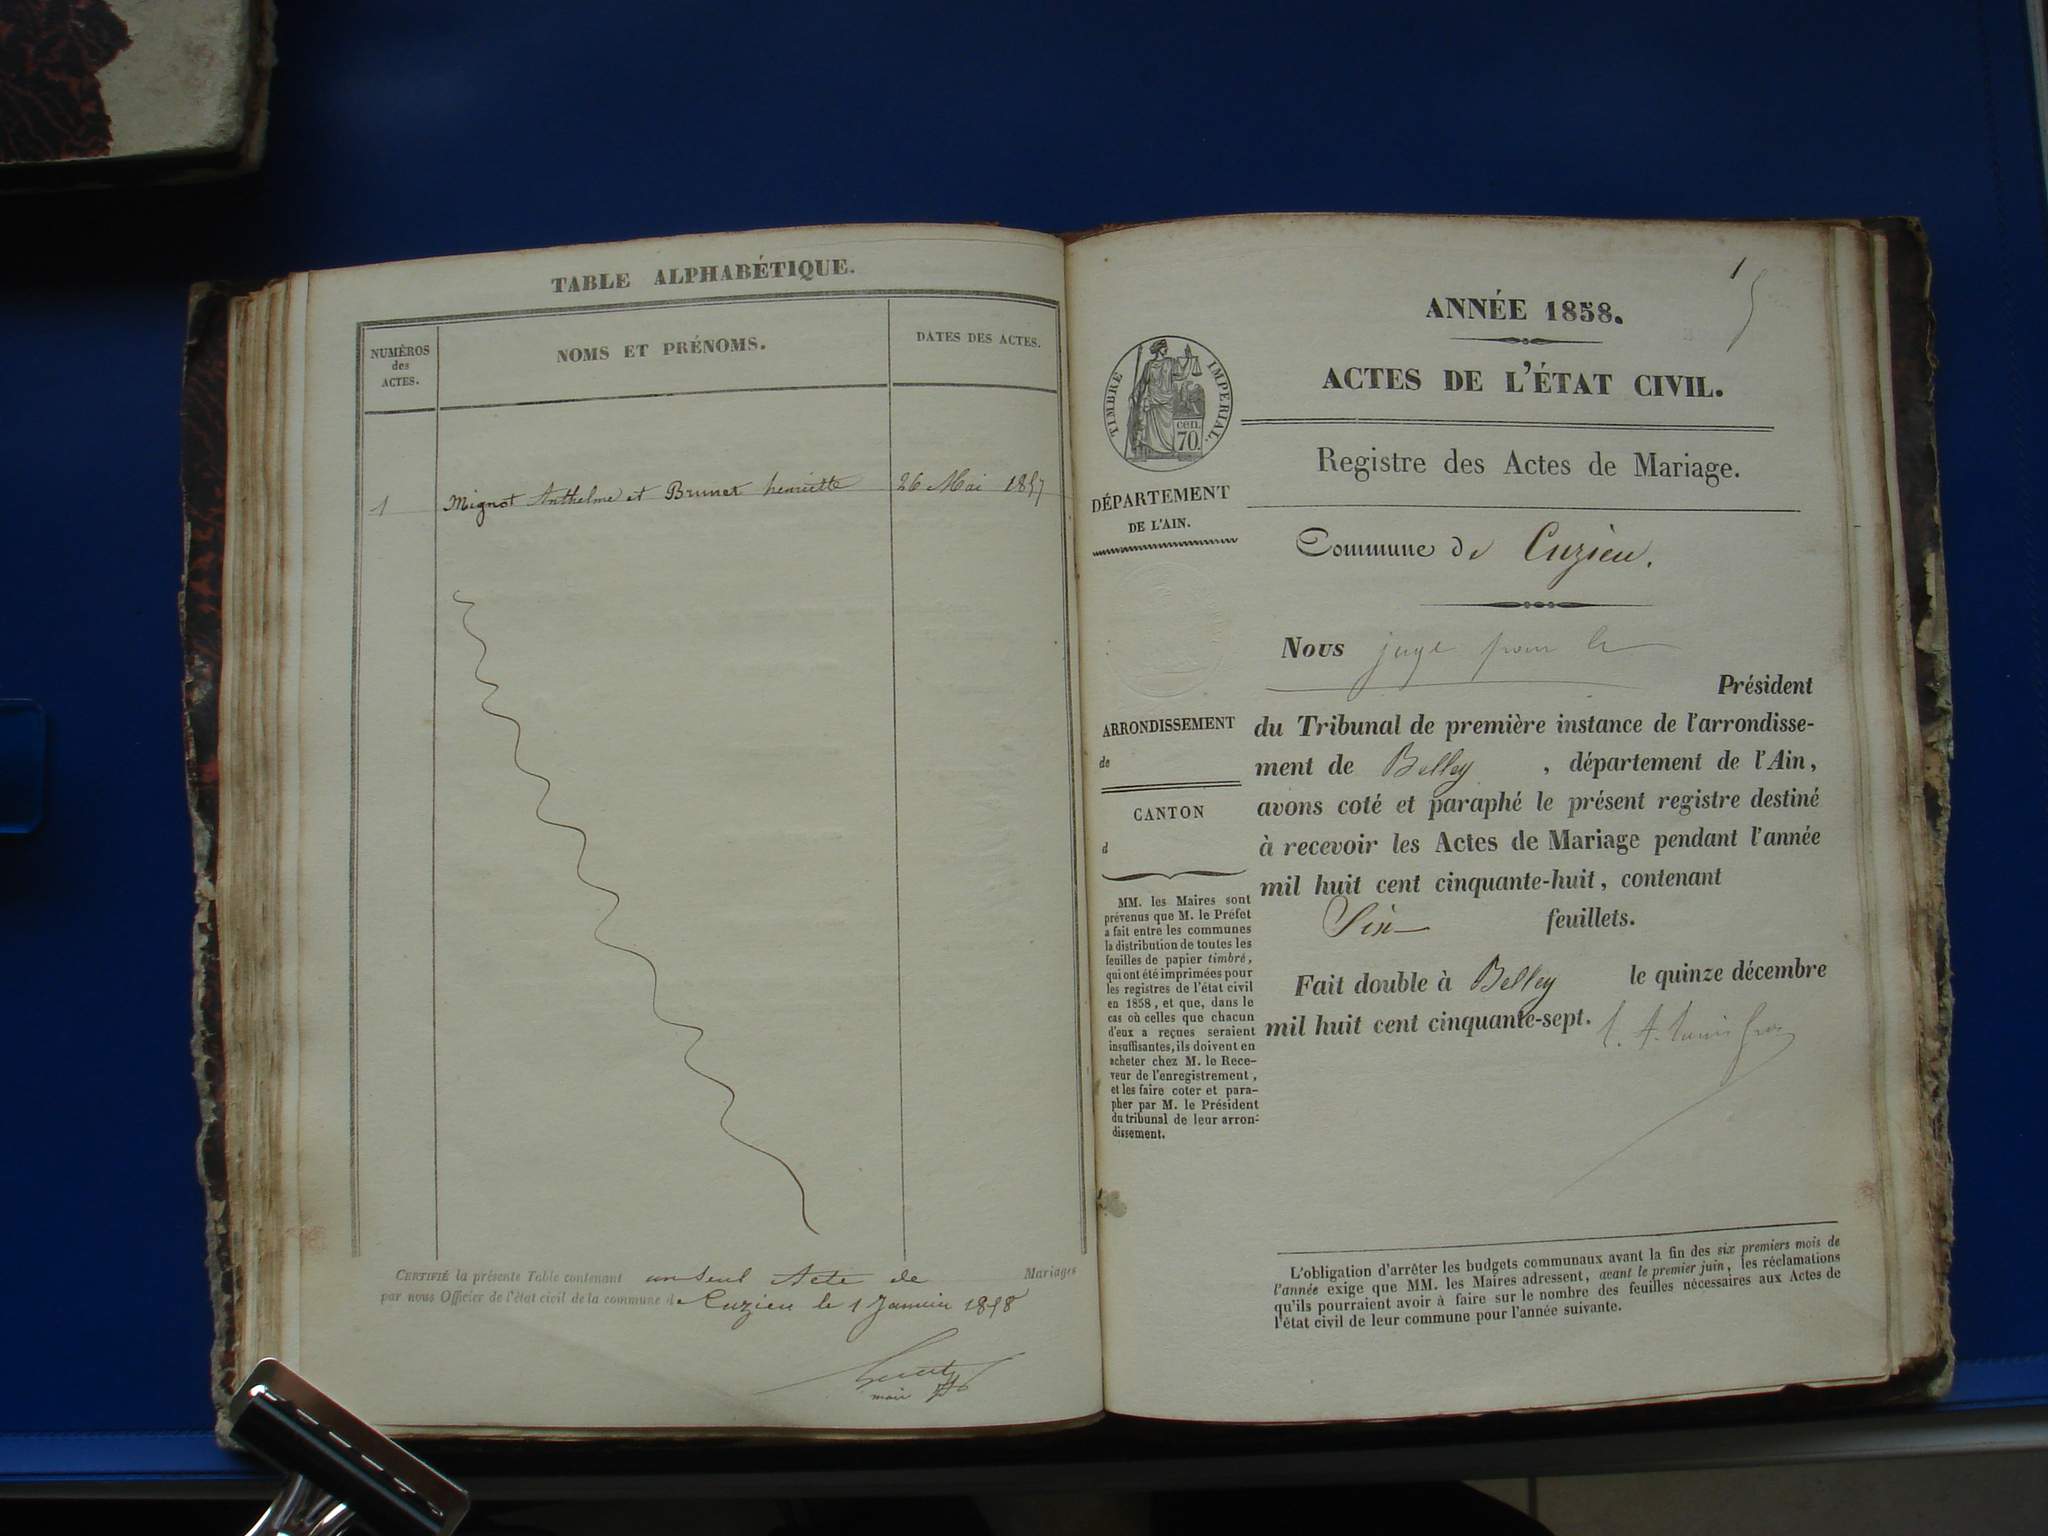 TABLE ALPHABÉTIQUE.
NUMÉROS
des
ACTES.
NOMS ET PRÉNOMS.
DATES DES ACTES.
1 Mignot Anthelme et Brunet henriette 26 Mai 1857
CERTIFIÉ la présente Table contenant un seul Acte de Mariages
par nous Officier de l'état civil de la commune de Cuzieu le 1 Janvier 1858
1
ANNÉE 1858.
ACTES DE L'ÉTAT CIVIL.
TIMBRE IMPERIAL.
cen.
70.
Registre des Actes de Mariage.
DÉPARTEMENT
DE L'AIN.
Commune de Cuzieu.
ARRONDISSEMENT
de
CANTON
d
MM. les Maires sont
prévenus que M. le Préfet
a fait entre les communes
la distribution de toutes les
feuilles de papier timbré,
qui ont été imprimées pour
les registres de l'état civil
en 1858, et que, dans le
cas où celles que chacun
d'eux a reçues seraient
insuffisantes, ils doivent en
acheter chez M. le Rece-
veur de l'enregistrement,
et les faire coter et para-
pher par M. le Président
du tribunal de leur arron-
dissement.
Nous juge pour le
Président
du Tribunal de première instance de l'arrondisse-
ment de Belley, département de l'Ain,
avons coté et paraphé le présent registre destiné
à recevoir les Actes de Mariage pendant l'année
mil huit cent cinquante-huit, contenant
Six feuillets.
Fait double à Belley le quinze décembre
mil huit cent cinquante-sept.
L'obligation d'arrêter les budgets communaux avant la fin des six premiers mois de
l'année exige que MM. les Maires adressent, avant le premier juin, les réclamations
qu'ils pourraient avoir à faire sur le nombre des feuilles nécessaires aux Actes de
l'état civil de leur commune pour l'année suivante.